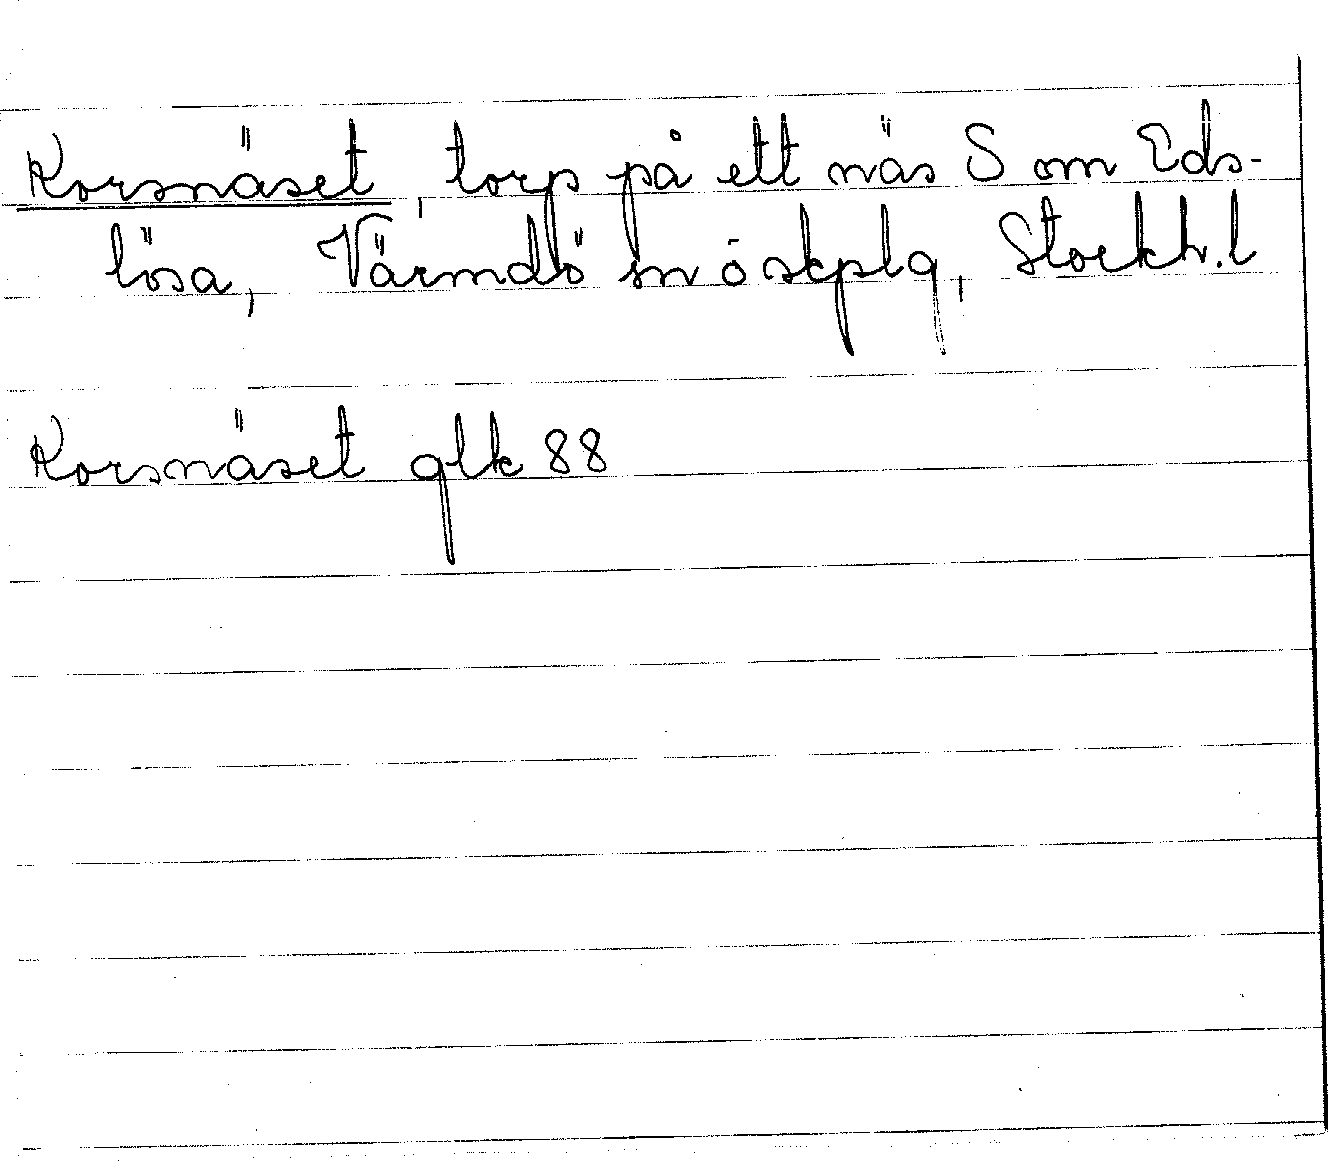 Korsnäset, torp på ett näs S om Eds-
lösa, Värmdö sn o skplg, Stockh. l
Korsnäset glk 88